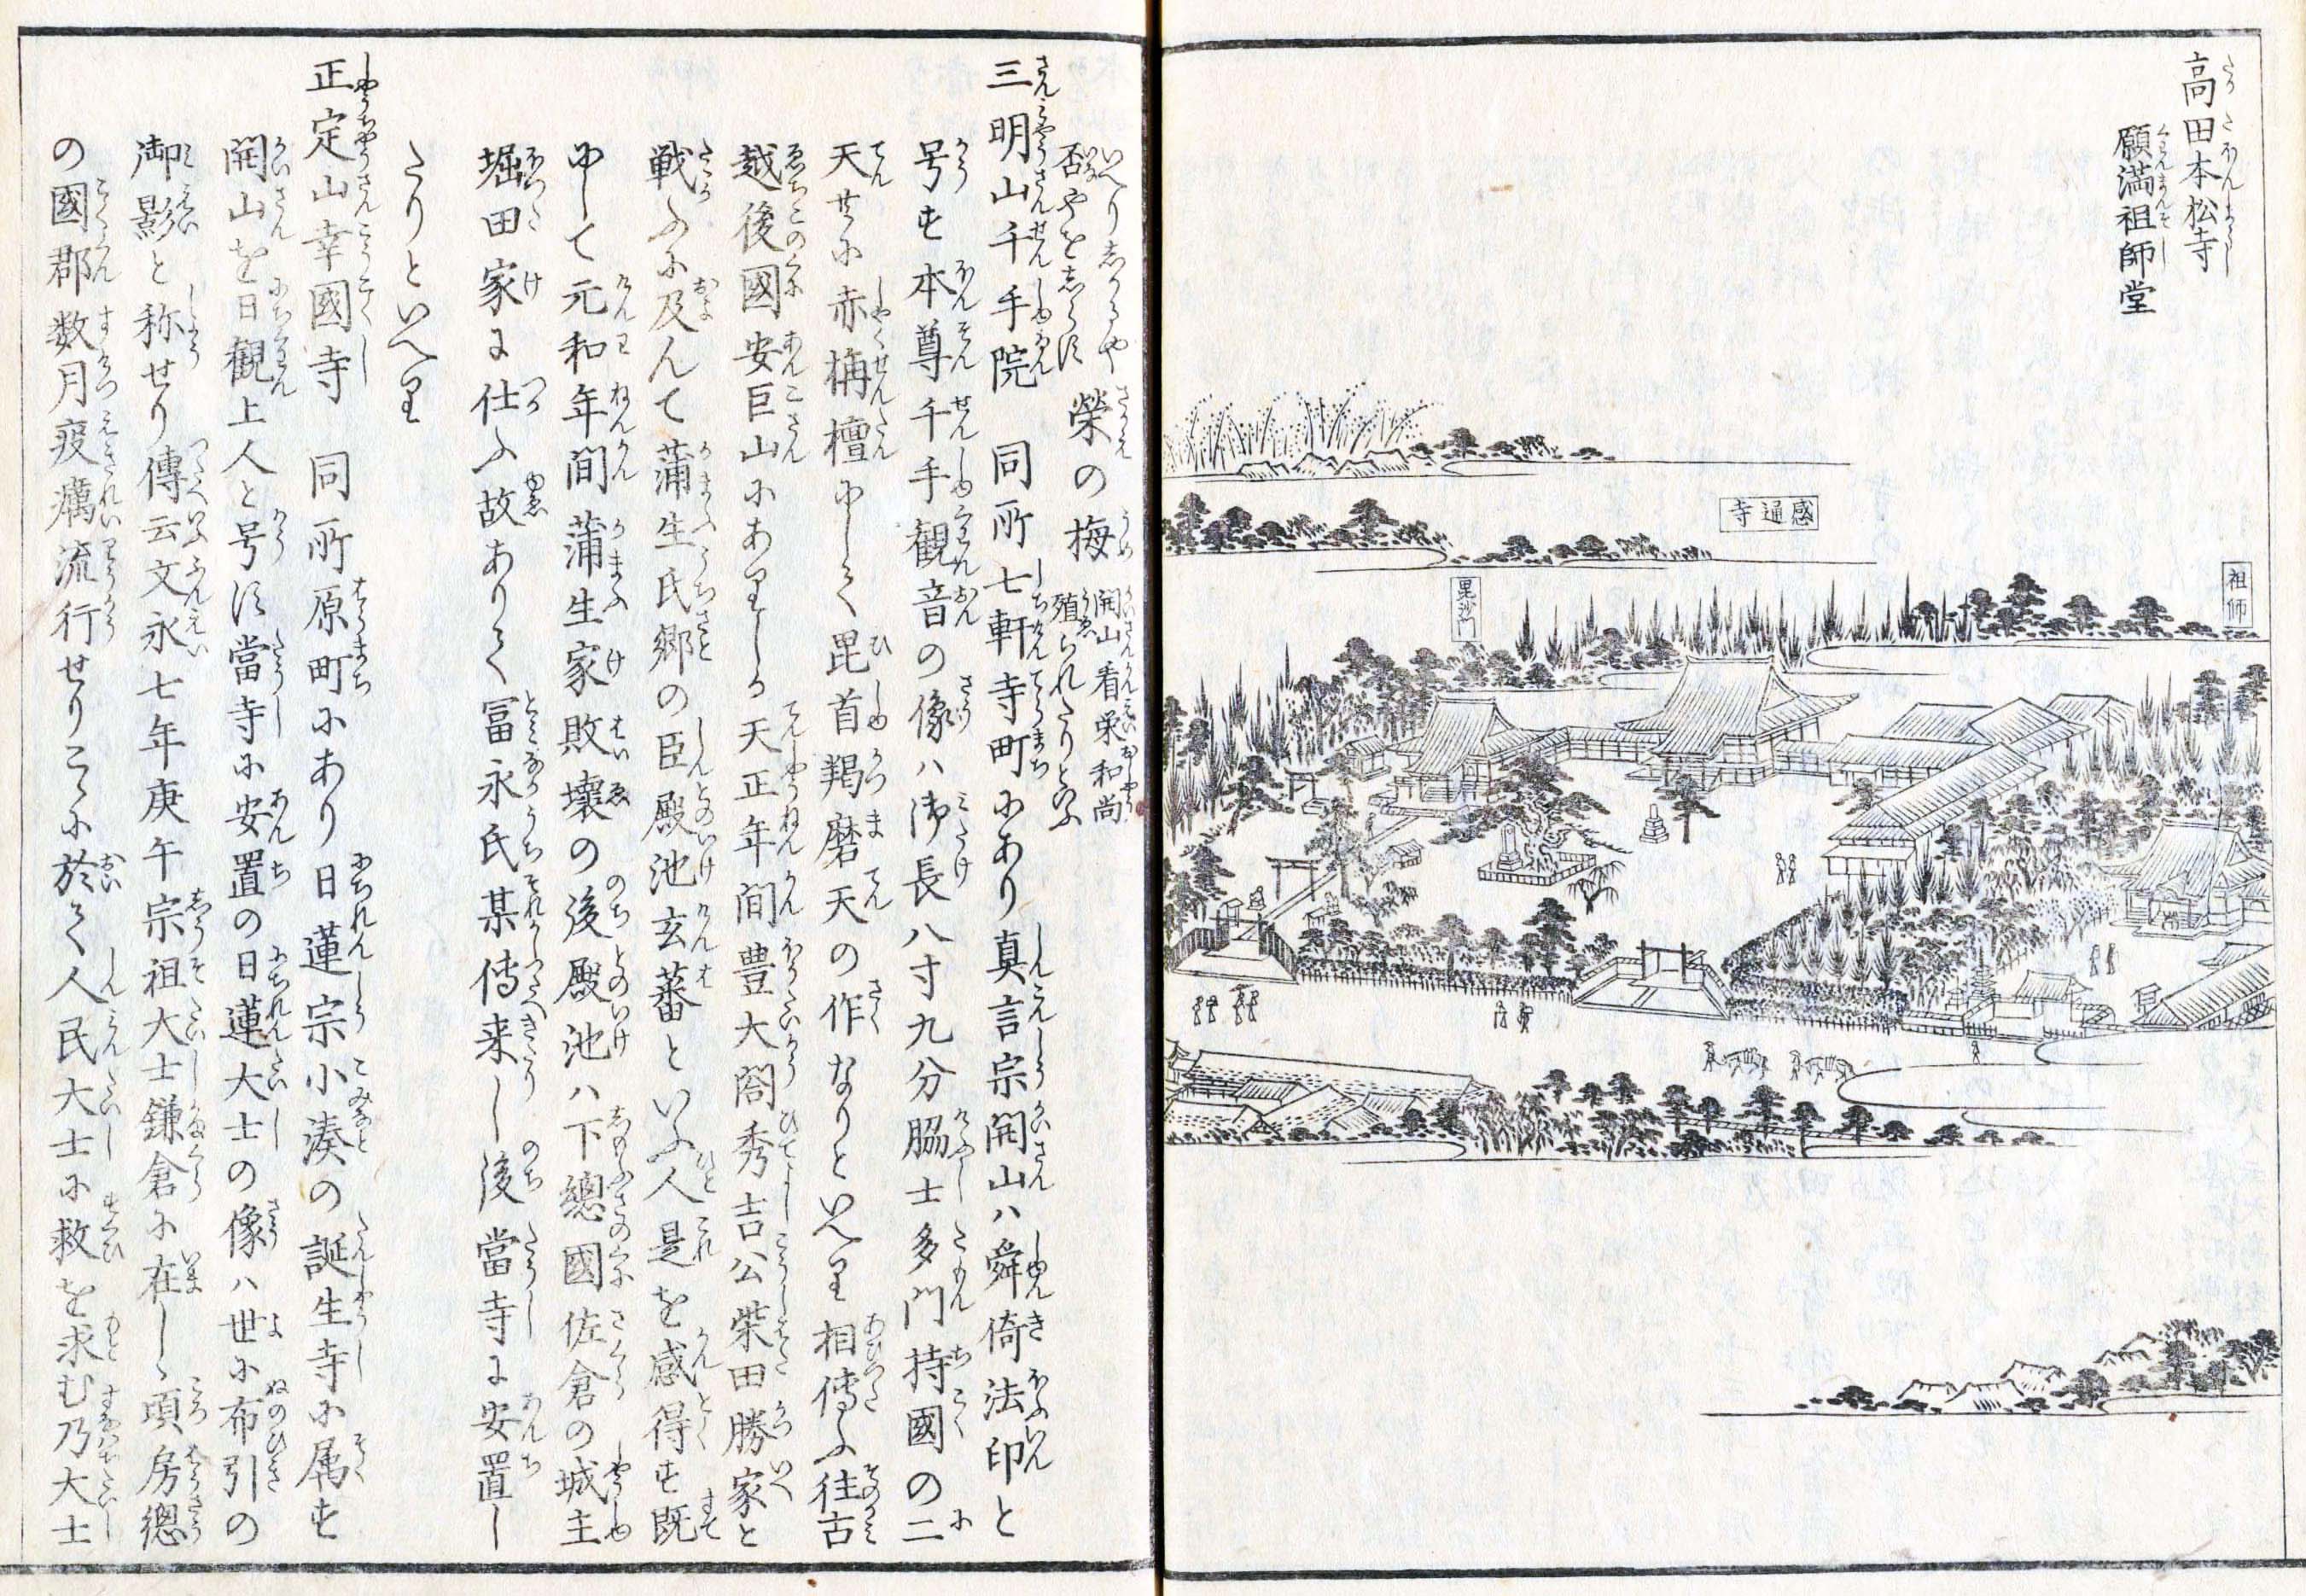 高田本松寺
願満祖師堂
感通寺
毘沙門
祖師
いへりしかるや
否やをしらす
榮の梅
開山看栄和尚
殖られたりといふ
三明山千手院　同所七軒寺町にあり真言宗開山ハ舜倚法印と
号す本尊千手観音の像ハ御長八寸九分脇士多門持國の二
天共に赤栴檀にして毘首羯磨天の作なりといへり相傳ふ往古
越後國安巨山にありしか天正年間豊大閤秀吉公柴田勝家と
戦ふに及んて蒲生氏郷の臣殿池玄蕃といふ人是を感得す既
にして元和年間蒲生家敗壊の後殿池ハ下總國佐倉の城主
堀田家に仕ふ故ありて冨永氏某傳来し後當寺に安置し
たりといへり
正定山幸國寺　同所原町にあり日蓮宗小湊の誕生寺に属す
開山を日観上人と号す當寺に安置の日蓮大士の像ハ世に布引の
御影と称せり傳云文永七年庚午宗祖大士鎌倉に在し頃房總
の國郡数月疫癘流行せりこゝに於て人民大士に救を求む乃大士